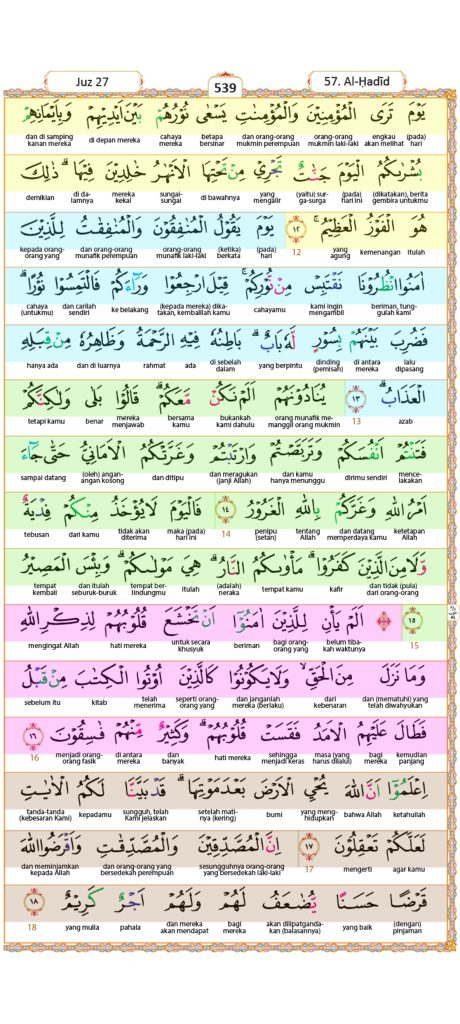 Juz 27
539
57. Al-Ḥadīd
يَوْمَ تَرَى الْمُؤْمِنِيْنَ وَالْمُؤْمِنٰتِ يَسْعٰى نُوْرُهُمْ بَيْنَ اَيْدِيْهِمْ وَبِاَيْمَانِهِمْ
(pada) hari engkau akan melihat orang-orang mukmin laki-laki dan orang-orang mukmin perempuan betapa bersinar cahaya mereka di depan mereka dan di samping kanan mereka
بُشْرٰىكُمُ الْيَوْمَ جَنّٰتٌ تَجْرِيْ مِنْ تَحْتِهَا الْاَنْهٰرُ خٰلِدِيْنَ فِيْهَاۗ ذٰلِكَ
(dikatakan), berita gembira untukmu (pada) hari ini (yaitu) sur-ga-surga yang mengalir di bawahnya sungai-sungai mereka kekal di da-lamnya demikian
هُوَ الْفَوْزُ الْعَظِيْمُۚ ١٢ يَوْمَ يَقُوْلُ الْمُنٰفِقُوْنَ وَالْمُنٰفِقٰتُ لِلَّذِيْنَ
itulah kemenangan yang agung 12 (pada) hari (ketika) berkata orang-orang munafik laki-laki dan orang-orang munafik perempuan kepada orang-orang yang
اٰمَنُوا انْظُرُوْنَا نَقْتَبِسْ مِنْ نُّوْرِكُمْۚ قِيْلَ ارْجِعُوْا وَرَاۤءَكُمْ فَالْتَمِسُوْا نُوْرًاۗ
beriman, tung-gulah kami kami ingin mengambil cahayamu (kepada mereka) dika-takan, kembalilah kamu ke belakang dan carilah sendiri cahaya (untukmu)
فَضُرِبَ بَيْنَهُمْ بِسُوْرٍ لَّهٗ بَابٌۗ بَاطِنُهٗ فِيْهِ الرَّحْمَةُ وَظَاهِرُهٗ مِنْ قِبَلِهِ
lalu dipasang di antara mereka dinding (pemisah) yang berpintu di sebelah dalam ada rahmat dan di luarnya hanya ada
الْعَذَابُۗ ١٣ يُنَادُوْنَهُمْ اَلَمْ نَكُنْ مَّعَكُمْۗ قَالُوْا بَلٰى وَلٰكِنَّكُمْ
azab 13 orang munafik me-manggil orang mukmin bukankah kami dahulu bersama kamu mereka menjawab benar tetapi kamu
فَتَنْتُمْ اَنْفُسَكُمْ وَتَرَبَّصْتُمْ وَارْتَبْتُمْ وَغَرَّتْكُمُ الْاَمَانِيُّ حَتّٰى جَاۤءَ
mence-lakakan dirimu sendiri dan kamu hanya menunggu dan meragukan (janji Allah) dan ditipu (oleh) angan-angan kosong sampai datang
اَمْرُ اللّٰهِ وَغَرَّكُمْ بِاللّٰهِ الْغَرُوْرُ ١٤ فَالْيَوْمَ لَا يُؤْخَذُ مِنْكُمْ فِدْيَةٌ
ketetapan Allah dan datang memperdaya kamu tentang Allah penipu (setan) 14 maka (pada) hari ini tidak akan diterima dari kamu tebusan
وَّلَا مِنَ الَّذِيْنَ كَفَرُوْاۗ مَأْوٰىكُمُ النَّارُۗ هِيَ مَوْلٰىكُمْۗ وَبِئْسَ الْمَصِيْرُ
dan tidak (pula) dari orang-orang kafir tempat kamu (adalah) neraka itulah tempat ber-lindungmu dan itulah seburuk-buruk tempat kembali
١٥ اَلَمْ يَأْنِ لِلَّذِيْنَ اٰمَنُوْٓا اَنْ تَخْشَعَ قُلُوْبُهُمْ لِذِكْرِ اللّٰهِ
15 belum tiba-kah waktunya bagi orang-orang beriman untuk secara khusyuk hati mereka mengingat Allah
وَمَا نَزَلَ مِنَ الْحَقِّۙ وَلَا يَكُوْنُوْا كَالَّذِيْنَ اُوْتُوا الْكِتٰبَ مِنْ قَبْلُ
dan (mematuhi) yang telah diwahyukan dari kebenaran dan janganlah mereka (berlaku) seperti orang-orang yang telah menerima kitab sebelum itu
فَطَالَ عَلَيْهِمُ الْاَمَدُ فَقَسَتْ قُلُوْبُهُمْۗ وَكَثِيْرٌ مِّنْهُمْ فٰسِقُوْنَ ١٦
kemudian panjang bagi mereka masa (yang harus dilalui) sehingga menjadi keras hati mereka dan banyak di antara mereka menjadi orang-orang fasik 16
اِعْلَمُوْٓا اَنَّ اللّٰهَ يُحْيِ الْاَرْضَ بَعْدَ مَوْتِهَاۗ قَدْ بَيَّنَّا لَكُمُ الْاٰيٰتِ
ketahuilah bahwa Allah yang meng-hidupkan bumi setelah mati-nya (kering) sungguh, telah Kami jelaskan kepadamu tanda-tanda (kebesaran Kami)
لَعَلَّكُمْ تَعْقِلُوْنَ ١٧ اِنَّ الْمُصَّدِّقِيْنَ وَالْمُصَّدِّقٰتِ وَاَقْرَضُوا اللّٰهَ
agar kamu mengerti 17 sesungguhnya orang-orang yang bersedekah laki-laki dan orang-orang yang bersedekah perempuan dan meminjamkan kepada Allah
قَرْضًا حَسَنًا يُّضٰعَفُ لَهُمْ وَلَهُمْ اَجْرٌ كَرِيْمٌ ١٨
(dengan) pinjaman yang baik akan dilipatganda-kan (balasannya) bagi mereka dan mereka akan mendapat pahala yang mulia 18